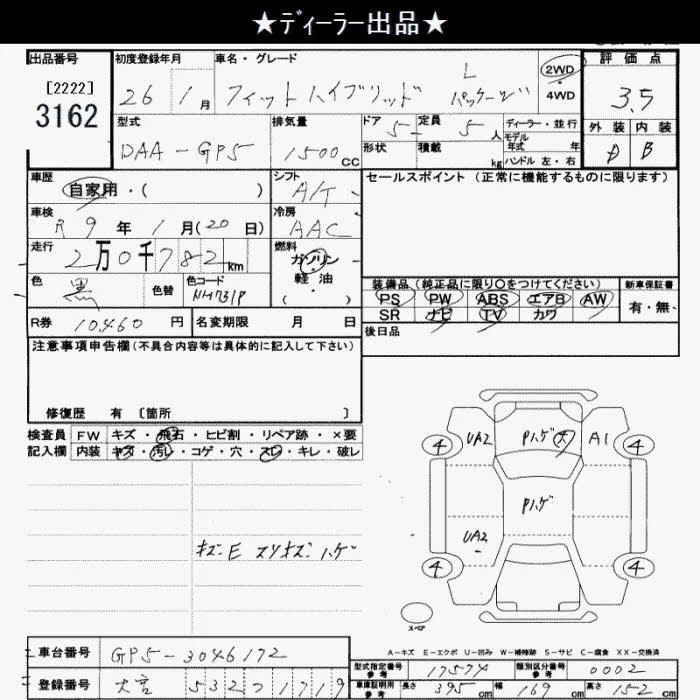 ★ディーラー出品★
出品番号 初度登録年月 車名・グレード 評価点
[2222]
3162
26 1月 フィットハイブリッド Lパッケージ 2WD・4WD 3.5
型式 排気量 ドア 5 定員 5人 ディーラー・並行 外装 内装
DAA-GP5 1500cc 形状 積載 kg モデル年式 年 ハンドル 左・右 D B
車歴 シフト セールスポイント (正常に機能するものに限ります)
自家用・( ) A/T
車検 冷房
R 9年 1月(20日) AAC
走行 燃料
2万0千782km ガソリン
軽・油
・( )
色 色替 色コード 装備品(純正品に限り〇をつけてください) 新車保証書
黒 NH731P PS PW ABS エアB AW 有・無
SR ナビ TV カワ
R券 10460円 名変期限 月 日 後日品
注意事項申告欄(不具合内容等は具体的に記入して下さい)
修復歴 有 [箇所 ]
検査員 FW キズ・飛石・ヒビ割・リペア跡・×要
記入欄 内装 キズ・汚レ・コゲ・穴・スレ・キレ・破レ
キズ・E スリキズ・ハゲ
4 UA2 Pハゲ 大 A1 4
Pハゲ
UA2
4 4
スペア
A-キズ E-エクボ U-凹み W-補修跡 S-サビ C-腐食 XX-交換済
車台番号 GP5-3046172
型式指定番号 参考 17574 類別区分番号 参考 0002
登録番号 大宮 532 つ 1719
車庫証明用 参考 長さ 395cm 幅 169cm 高さ 152cm